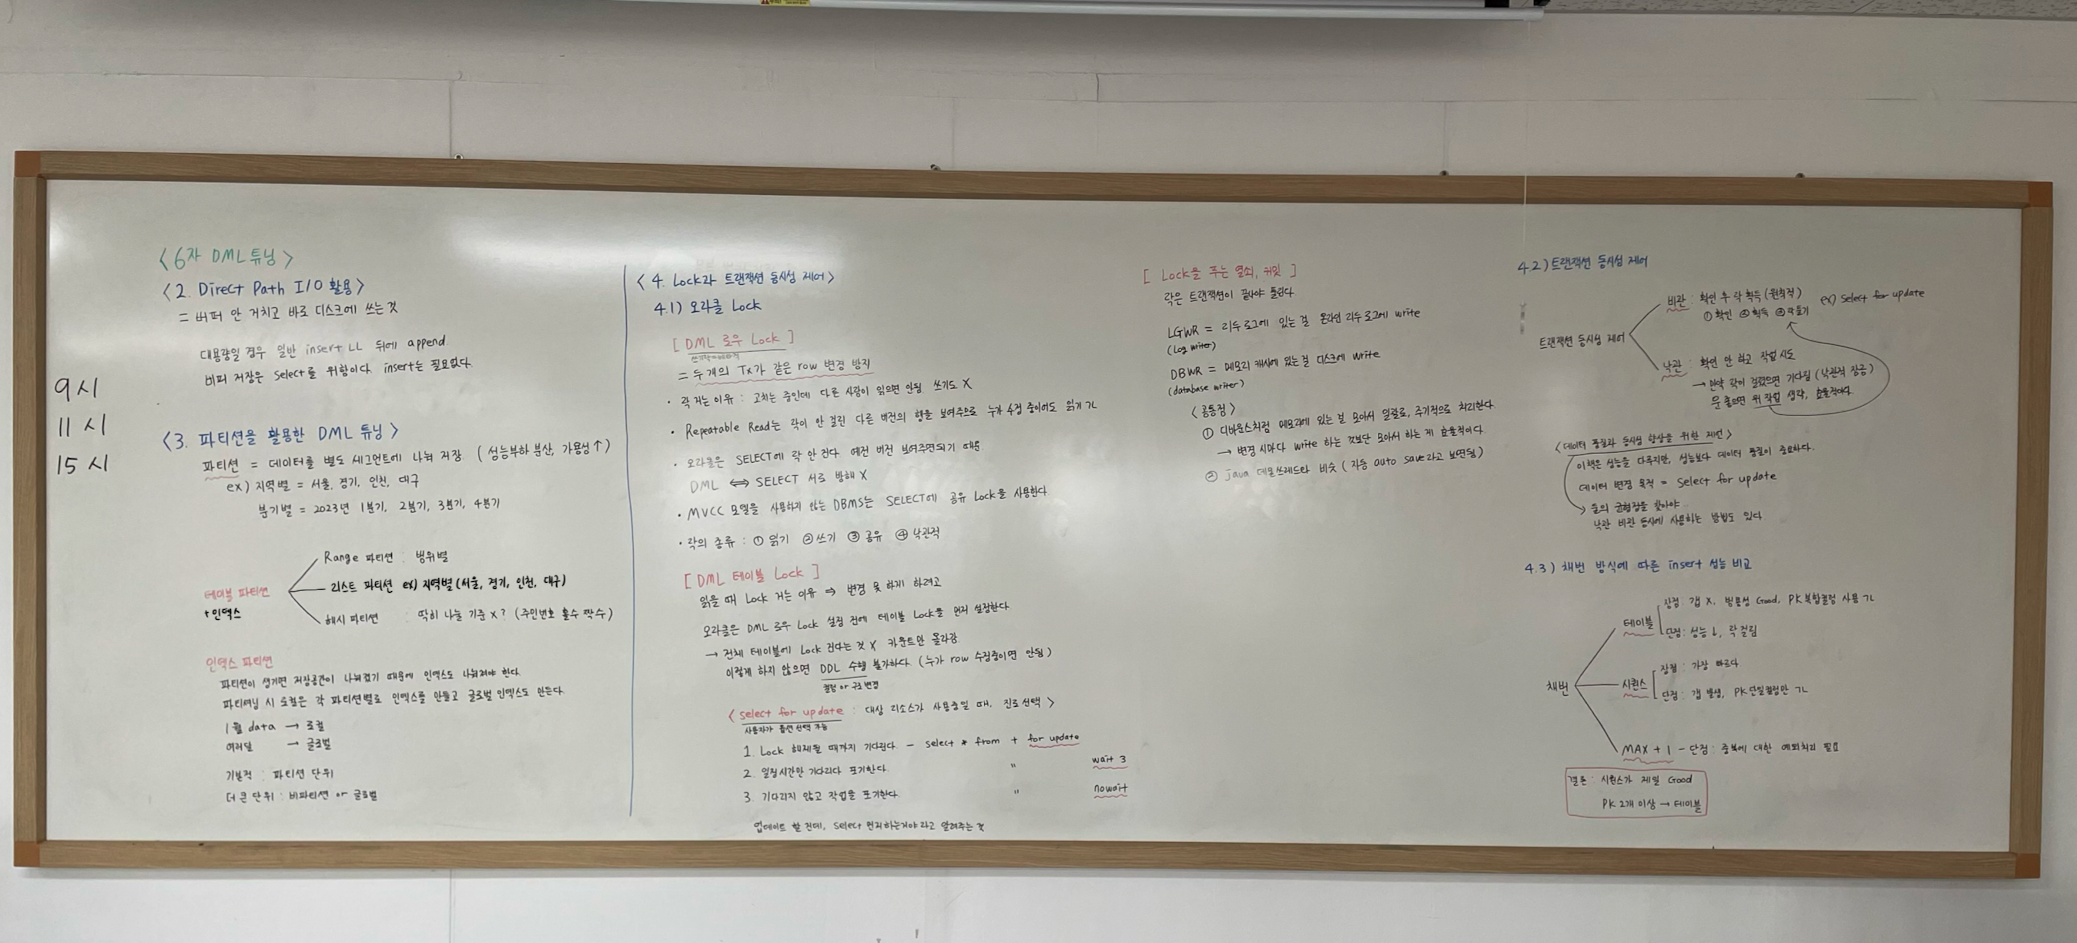 9시
11시
15시
<6장 DML 튜닝>
<2. Direct Path I/O 활용>
= 버퍼 안 거치고 바로 디스크에 쓰는 것
대용량일 경우 일반 insert LL 뒤에 append.
버퍼 저장은 select를 위함이다. insert는 필요없다.
<3. 파티션을 활용한 DML 튜닝>
파티션 = 데이터를 별도 세그먼트에 나눠 저장. (성능부하 분산, 가용성↑)
ex) 지역별 = 서울, 경기, 인천, 대구
분기별 = 2023년 1분기, 2분기, 3분기, 4분기
테이블 파티션
+인덱스
Range 파티션 : 범위별
리스트 파티션 ex) 지역별(서울, 경기, 인천, 대구)
해시 파티션 : 딱히 나눌 기준 X? (주민번호 홀수 짝수)
인덱스 파티션
파티션이 생기면 저장공간이 나눠졌기 때문에 인덱스도 나눠져야 한다.
파티셔닝 시 로컬은 각 파티션별로 인덱스를 만들고 글로벌 인덱스도 만든다.
1월 data → 로컬
여러달 → 글로벌
기본적 : 파티션 단위
더 큰 단위 : 비파티션 or 글로벌
<4. Lock과 트랜잭션 동시성 제어>
4.1) 오라클 Lock
[DML 로우 Lock]
= 두 개의 Tx가 같은 row 변경 방지
· 락 거는 이유 : 고치는 중인데 다른 사람이 읽으면 안됨. 쓰기도 X
· Repeatable Read는 락이 안 걸린 다른 버전의 행을 보여주므로 누가 수정 중이어도 읽기 가능
· 오라클은 SELECT에 락 안 건다. 예전 버전 보여주면되기 때문.
DML ⇔ SELECT 서로 방해 X
· MVCC 모델을 사용하지 않는 DBMS는 SELECT에 공유 Lock을 사용한다.
· 락의 종류 : ① 읽기 ② 쓰기 ③ 공유 ④ 낙관적
[DML 테이블 Lock]
읽을 때 Lock 거는 이유 ⇒ 변경 못 하게 하려고
오라클은 DML 로우 Lock 설정 전에 테이블 Lock을 먼저 설정한다.
→ 전체 테이블에 Lock 건다는 것 X 카운트만 올라감.
이렇게 하지 않으면 DDL 수행 불가하다. (누가 row 수정중이면 안됨)
컬럼 or 구조 변경
<select for update : 대상 리소스가 사용중일 때, 진로선택>
사용자가 옵션 선택 가능
1. Lock 해제될 때까지 기다린다 - select * from + for update
2. 일정시간만 기다리다 포기한다. " wait 3
3. 기다리지 않고 작업을 포기한다. " nowait
업데이트 할 건데, select 먼저하는거야 라고 알려주는 것
[Lock을 푸는 열쇠, 커밋]
락은 트랜잭션이 끝나야 풀린다.
LGWR = 리두 로그에 있는 걸 온라인 리두 로그에 write
(Log writer)
DBWR = 메모리 캐시에 있는 걸 디스크에 write
(database writer)
<공통점>
① 디바운스처럼 메모리에 있는 걸 모아서 일괄로, 주기적으로 처리한다.
→ 변경 시마다 write 하는 것보단 모아서 하는 게 효율적이다.
② java 데몬쓰레드와 비슷 (자동 auto save라고 보면됨)
4.2) 트랜잭션 동시성 제어
트랜잭션 동시성 제어
비관 : 확인 후 락 획득 (원칙적) ex) select for update
① 확인 ② 획득 ③ 락풀기
낙관 : 확인 안 하고 작업 시도
→ 만약 락이 걸렸으면 기다림 (낙관적 잠금)
운 좋으면 위 작업 생략, 효율적이다.
<데이터 품질과 동시성 향상을 위한 제언>
이책은 성능을 다루지만, 성능보다 데이터 품질이 중요하다.
데이터 변경 목적 = select for update
→ 둘의 균형점을 찾아야.
낙관 비관 동시에 사용하는 방법도 있다.
4.3) 채번 방식에 따른 insert 성능 비교
채번
테이블
장점: 갭 X, 범용성 Good, PK 복합컬럼 사용 가능
단점: 성능↓, 락 걸림
시퀀스
장점 : 가장 빠르다
단점 : 갭 발생, PK 단일컬럼만 가능
MAX + 1 - 단점 : 중복에 대한 예외처리 필요
결론 : 시퀀스가 제일 Good
PK 2개 이상 → 테이블